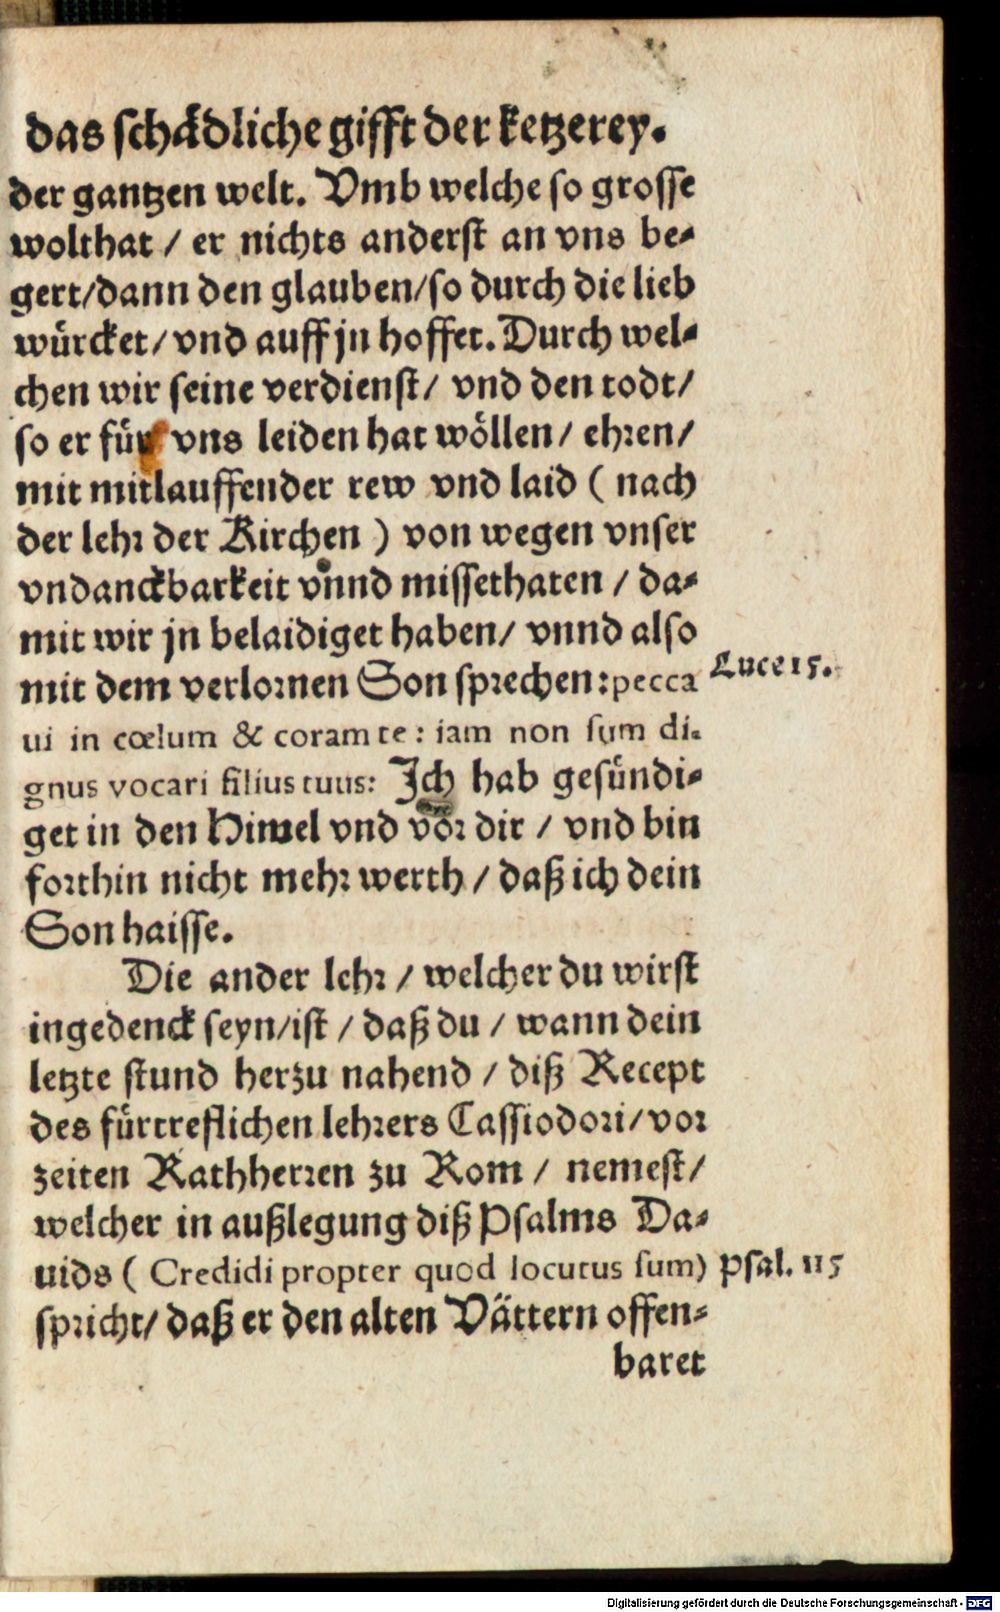 das schädliche gifft der ketzerey.
der gantzen welt. Vmb welche so grosse
wolthat / er nichts anderst an vns be-
gert/dann den glauben/so durch die lieb
würcket/ vnd auff jn hoffet. Durch wel-
chen wir seine verdienst/ vnd den todt/
so er für vns leiden hat wöllen/ ehren/
mit mitlauffender rew vnd laid ( nach
der lehr der Kirchen ) von wegen vnser
vndanckbarkeit vnnd missethaten / da-
mit wir jn belaidiget haben/ vnnd also
mit dem verlornen Son sprechen: pecca
Luce 15.
ui in cœlum & coram te: iam non sum di-
gnus vocari filius tuus: Ich hab gesündi-
get in den Himel vnd vor dir / vnd bin
forthin nicht mehr werth / daß ich dein
Son haisse.
Die ander lehr / welcher du wirst
ingedenck seyn/ist / daß du / wann dein
letzte stund herzu nahend / diß Recept
des fürtreflichen lehrers Cassiodori/vor
zeiten Rathherren zu Rom / nemest/
welcher in außlegung diß Psalms Da-
uids ( Credidi propter quod locutus sum)
Psal. 115
spricht/ daß er den alten Vättern offen-
baret
Digitalisierung gefördert durch die Deutsche Forschungsgemeinschaft - DFG